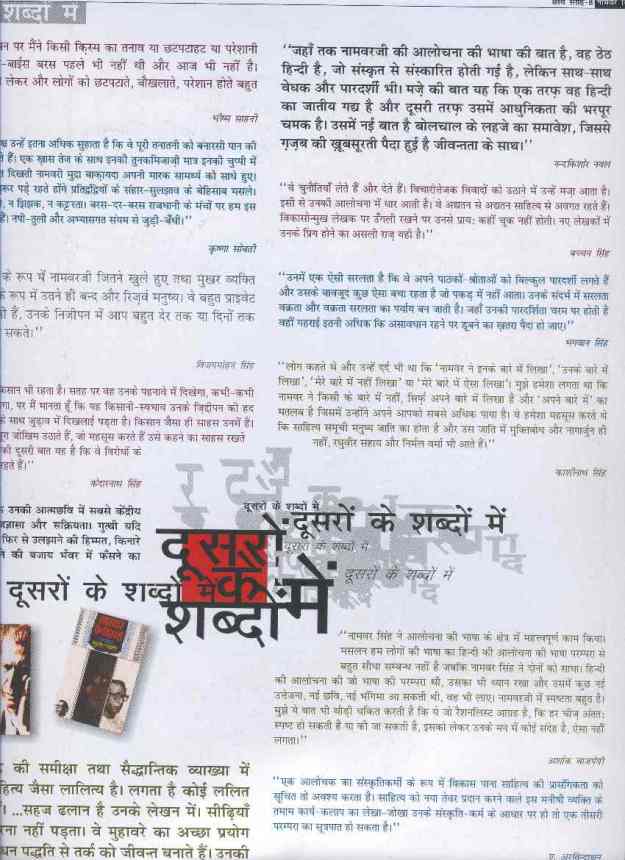 शब्दों में
नामवर
न पर मैंने किसी क़िस्म का तनाव या छटपटाहट या परेशानी
-बाईस बरस पहले भी नहीं थी और आज भी नहीं है।
लेकर और लोगों को छटपटाते, बौखलाते, परेशान होते बहुत
भीष्म साहनी
उन्हें इतना अधिक सुहाता है कि वे पूरी तनातनी को बनारसी पान की
ते हैं। एक ख़ास तेज के साथ इनकी तुनकमिजाज़ी मात्र इनकी चुप्पी में
दिखती नामवरी मुद्रा बाक़ायदा अपनी मारक सामर्थ्य को साधे हुए।
पड़े रहते होंगे प्रतिद्वंद्वियों के संहार-सुलझाव के बेहिसाब मसले।
न झिझक, न कट्टरता। बरस-दर-बरस राजधानी के मंचों पर हम इस
हैं। नपी-तुली और अभ्यासगत संयम से जुड़ी-बँधी।''
कृष्णा सोबती
के रूप में नामवरजी जितने खुले हुए तथा मुखर व्यक्ति
के रूप में उतने ही बन्द और रिज़र्व मनुष्य। वे बहुत प्राइवेट
ी हैं, उनके निजीपन में आप बहुत देर तक या दिनों तक
सकते।''
विजयमोहन सिंह
कसान भी रहता है। सतह पर वह उनके पहनावे में दिखेगा, कभी-कभी
गा, पर मैं मानता हूँ कि यह किसानी-स्वभाव उनके जिद्दीपन की हद
के साथ जुड़ाव में दिखलाई पड़ता है। किसान जैसा ही साहस उनमें है।
जोखिम उठाते हैं, जो महसूस करते हैं उसे कहने का साहस रखते
की दूसरी बात यह है कि वे विरोधों के
रहते हैं।''
केदारनाथ सिंह
उनकी आत्मछवि में सबसे केंद्रीय
जिज्ञासा और सक्रियता। गुत्थी यदि
फिर से उलझाने की हिम्मत, किनारे
ने की बजाय भँवर में फँसने का
''जहाँ तक नामवरजी की आलोचना की भाषा की बात है, वह ठेठ
हिन्दी है, जो संस्कृत से संस्कारित होती गई है, लेकिन साथ-साथ
बेधक और पारदर्शी भी। मज़े की बात यह कि एक तरफ़ वह हिन्दी
का जातीय गद्य है और दूसरी तरफ़ उसमें आधुनिकता की भरपूर
चमक है। उसमें नई बात है बोलचाल के लहजे का समावेश, जिससे
ग़ज़ब की ख़ूबसूरती पैदा हुई है जीवन्तता के साथ।''
नन्दकिशोर नवल
''वे चुनौतियाँ लेते हैं और देते हैं। विचारोत्तेजक विवादों को उठाने में उन्हें मज़ा आता है।
इसी से उनकी आलोचना में धार आती है। वे अद्यतन से अद्यतन साहित्य से अवगत रहते हैं।
विकासोन्मुख लेखक पर उँगली रखने पर उनसे प्राय: कहीं चूक नहीं होती। नए लेखकों में
उनके प्रिय होने का असली राज़ यही है।''
बच्चन सिंह
''उनमें एक ऐसी सरलता है कि वे अपने पाठकों-श्रोताओं को बिल्कुल पारदर्शी लगते हैं
और उसके बावजूद कुछ ऐसा बचा रहता है जो पकड़ में नहीं आता। उनके संदर्भ में सरलता
वक्रता और वक्रता सरलता का पर्याय बन जाती है। जहाँ उनकी पारदर्शिता चरम पर होती है
वहीं गहराई इतनी अधिक कि असावधान रहने पर डूबने का ख़तरा पैदा हो जाए।''
भगवान सिंह
''लोग कहते थे और उन्हें दर्द भी था कि 'नामवर ने इनके बारे में लिखा', 'उनके बारे में
लिखा', 'मेरे बारे में नहीं लिखा' या 'मेरे बारे में ऐसा लिखा'। मुझे हमेशा लगता था कि
नामवर ने किसी के बारे में नहीं, सिर्फ़ अपने बारे में लिखा है और 'अपने बारे में' का
मतलब है जिसमें उन्होंने अपने आपको सबसे अधिक पाया है। वे हमेशा महसूस करते थे
कि साहित्य समूची मनुष्य जाति का होता है और उस जाति में मुक्तिबोध और नागार्जुन ही
नहीं, रघुवीर सहाय और निर्मल वर्मा भी आते हैं।''
काशीनाथ सिंह
दूसरों के शब्दों में
दूसरों के शब्दों में
दूसरों के शब्दों में
दूसरों के शब्दों में
दूसरों के शब्दों में
दूसरों के शब्दों में
''नामवर सिंह ने आलोचना की भाषा के क्षेत्र में महत्त्वपूर्ण काम किया।
मसलन हम लोगों की भाषा का हिन्दी की आलोचना की भाषा परम्परा से
बहुत सीधा सम्बन्ध नहीं है जबकि नामवर सिंह ने दोनों को साधा। हिन्दी
की आलोचना की जो भाषा की परम्परा थी, उसका भी ध्यान रखा और उसमें कुछ नई
उत्तेजना, नई छवि, नई भंगिमा आ सकती थी, वह भी लाए। नामवरजी में स्पष्टता बहुत है।
मुझे ये बात भी थोड़ी चकित करती है कि ये जो रैशनलिस्ट आग्रह है, कि हर चीज़ अंतत:
स्पष्ट हो सकती है या की जा सकती है, इसको लेकर उनके मन में कोई संदेह है, ऐसा नहीं
लगता।''
अशोक वाजपेयी
''एक आलोचक का संस्कृतिकर्मी के रूप में विकास पाना साहित्य की प्रासंगिकता को
सूचित तो अवश्य करता है। साहित्य को नया तेवर प्रदान करने वाले इस मनीषी व्यक्ति के
तमाम कार्य-कलाप का लेखा-जोखा उनके संस्कृति-कर्म के आधार पर हो तो एक तीसरी
परम्परा का सूत्रपात हो सकता है।''
ए. अरविन्दाक्षन
की समीक्षा तथा सैद्धान्तिक व्याख्या में
हित्य जैसा लालित्य है। लगता है कोई ललित
। ...सहज ढलान है उनके लेखन में। सीढ़ियाँ
रना नहीं पड़ता। वे मुहावरे का अच्छा प्रयोग
धन पद्धति से तर्क को जीवन्त बनाते हैं। उनकी